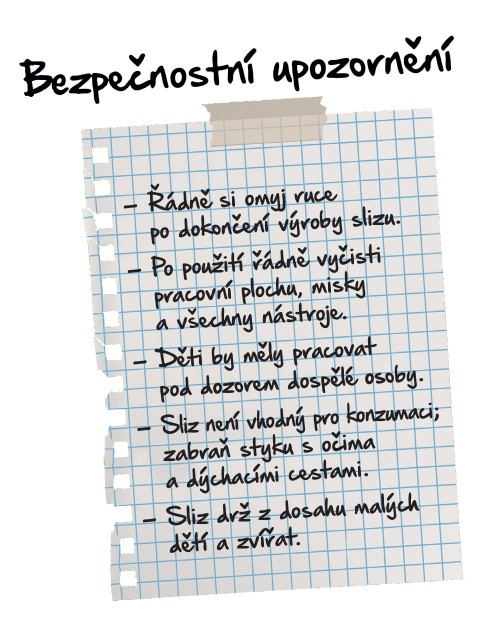 Bezpečnostní upozornění
– Řádně si omyj ruce
po dokončení výroby slizu.
– Po použití řádně vyčisti
pracovní plochu, misky
a všechny nástroje.
– Děti by měly pracovat
pod dozorem dospělé osoby.
– Sliz není vhodný pro konzumaci;
zabraň styku s očima
a dýchacími cestami.
– Sliz drž z dosahu malých
dětí a zvířat.